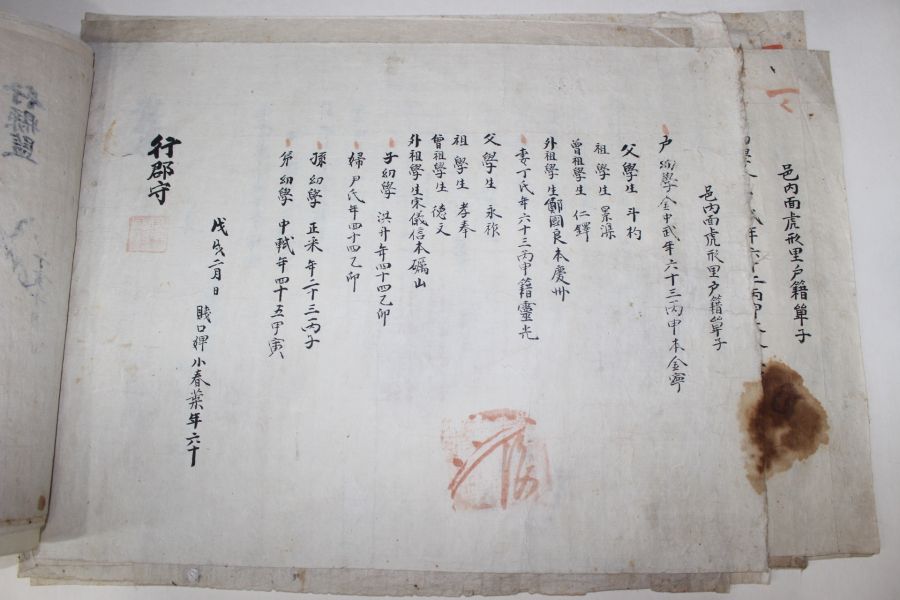 邑內面虎形里戶籍單子
年六十三丙申本
邑內面虎形里戶籍單子
戶幼學金中武年六十三丙申本金寧
父學生 斗杓
祖學生 景濂
曾祖學生 仁鐸
外祖學生鄭國良本慶州
妻丁氏年六十三丙申籍靈光
父學生 永祿
祖學生 孝奉
曾祖學生 德文
外祖學生宋儀信本礪山
子幼學 洪升年四十四乙卯
婦尹氏年四十四乙卯
孫幼學 正采年二十三丙子
弟幼學 中軾年四十五甲寅
戊戌二月 日
賤口婢小春葉年六十
行郡守
行縣監